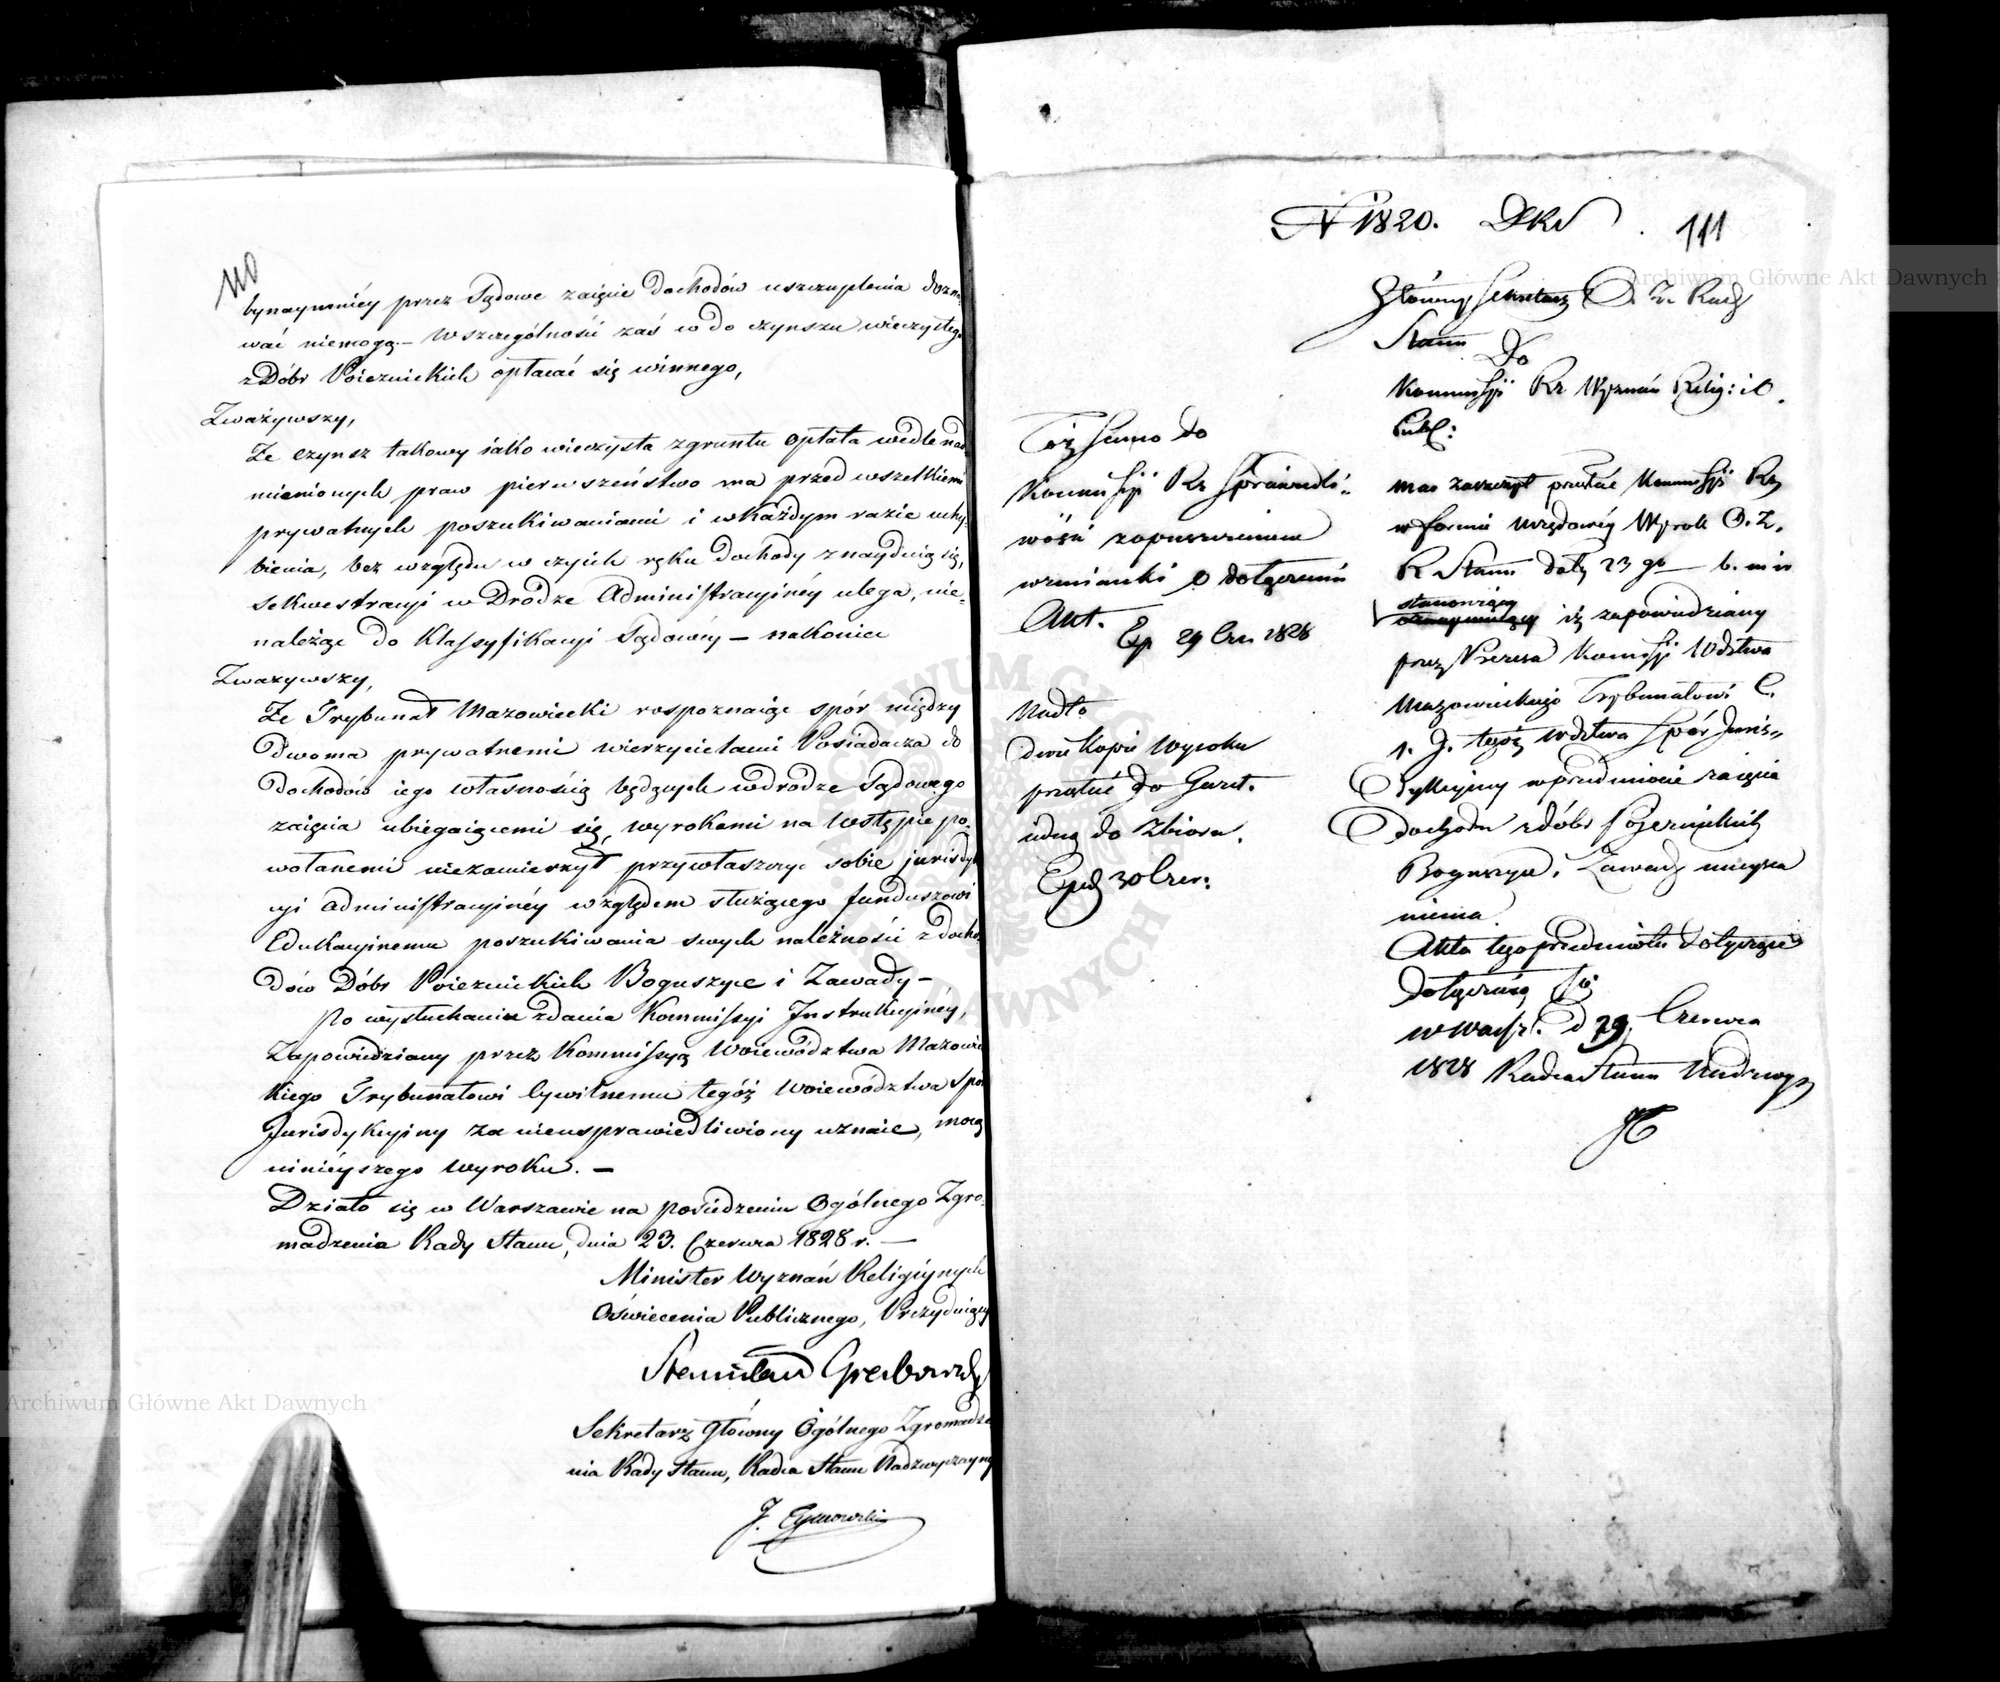 110
bynaymniéy przez Sądowe zaięcie Dochodów uszczuplenia dozna-
wać niemogą. — W szczególności zaś co do czynszu wieczystego
z Dóbr Poiezuickich opłacać się winnego,
Zważywszy,
Że czynsz takowy iako wieczysta z gruntu opłata wedle nad-
mienionych praw pierwszeństwo ma przed wszelkiemi
prywatnych poszukiwaniami i w każdym razie uchy-
bienia, bez względu w czyich ręku Dochody znayduią się,
sekwestracyi w Drodze Administracyinéy ulega, nie-
należąc do Klassyfikacyi Sądowéy — nakoniec
Zważywszy,
Że Trybunał Mazowiecki rospoznaiąc spór między
Dwoma prywatnemi wierzycielami Posiadacza do
Dochodów iego własnością będących w drodze Sądowego
zaięcia ubiegaiącemi się, wyrokami na wstępie po-
wołanemi niezamierzył przywłaszczyć sobie jurisdyk
cyi administracyinéy względem służącego funduszowi
Edukacyinemu poszukiwania swych należności z docho-
dów Dóbr Poiezuickich Boguszyce i Zawady —
Po wysłuchaniu zdania Kommissyi Instrukcyinéy,
Zapowiedziany przez Kommissyą Woiewództwa Mazowiec
kiego Trybunałowi Cywilnemu tegóż Woiewództwa Spór
Jurisdykcyiny za nieusprawiedliwiony uznaie, mocą
ninieyszego wyroku. —
Działo się w Warszawie na posiedzeniu Ogólnego Zgro-
madzenia Rady Stanu, dnia 23. Czerwca 1828 r. —
Minister Wyznań Religiynych
Oświecenia Publicznego, Prezyduiący
Stanisław Grabowski
Sekretarz Główny Ogólnego Zgromadze
nia Rady Stanu, Radca Stanu Nadzwyczayny
J. Tymowski
N 1820. 111
Główny Sekretarz O. Z. Rady
Stanu
Do
Kommissyi Rz Wyznań Relig: i O.
Publ:
ma zaszczyt przesłać Kommissyi Rz
w formie urzędowéy Wyrok O. Z.
R Stanu daty 23 go b. m i r
stanowiący
iż zapowiedziany
przez Prezesa Komissyi Wdztwa
Mazowieckiego Trybunałowi C.
1. J. tegóż wdztwa spór Juris-
Dykcyiny w przedmiocie zaięcia
Dochodu z dóbr Pojezuickich
Boguszyce i Zawady mieysca
niema.
Akta tego przedmiotu dotyczące
dołączaią się
w Warsz. d 29 Czerwca
1828 Radca Stanu Nadzwycz
Toż samo do
Kommissyi Rz Sprawiedli-
wości z opuszczeniem
wzmianki o dołączeniu
Akt.
Exp 29 Cze 1828
Nadto
dwie kopie Wyroku
przesłać do
iedną do Zbioru.
Exped 30 Czer:
Archiwum Główne Akt Dawnych
Archiwum Główne Akt Dawnych